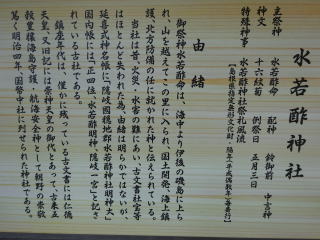 水若酢神社
主祭神　水若酢命　配神　鈴御前　中言神
神文　十六紋菊　例祭日　五月三日
特殊神事　水若酢神社祭礼風流
【島根県指定無形文化財　隔年(平成偶数年)奉行】
由緒
御祭神水若酢命は、海中より伊後の磯島に上ら
れ、山を越えてこの里に入られ、国土開発、海上鎮
護、北方防備の任に就かれた神と伝えられている。
当社は昔、火災・水害の難にあい、古文書社宝等
はほとんど失われた為、由緒は明らかではないが、
延喜式神名帳に「隠岐國穏地郡水若酢神社明神大」
國内帳には「正四位上水若酢明神、隠岐一宮」と記さ
れている古社である。
鎮座年代は、僅かに残っている古文書には仁徳
天皇、又旧記には崇神天皇の御代とあって、古来五
穀豊穣海島守護・航海安全神として朝野の崇敬
篤く明治四年、国幣中社に列せられた神社である。